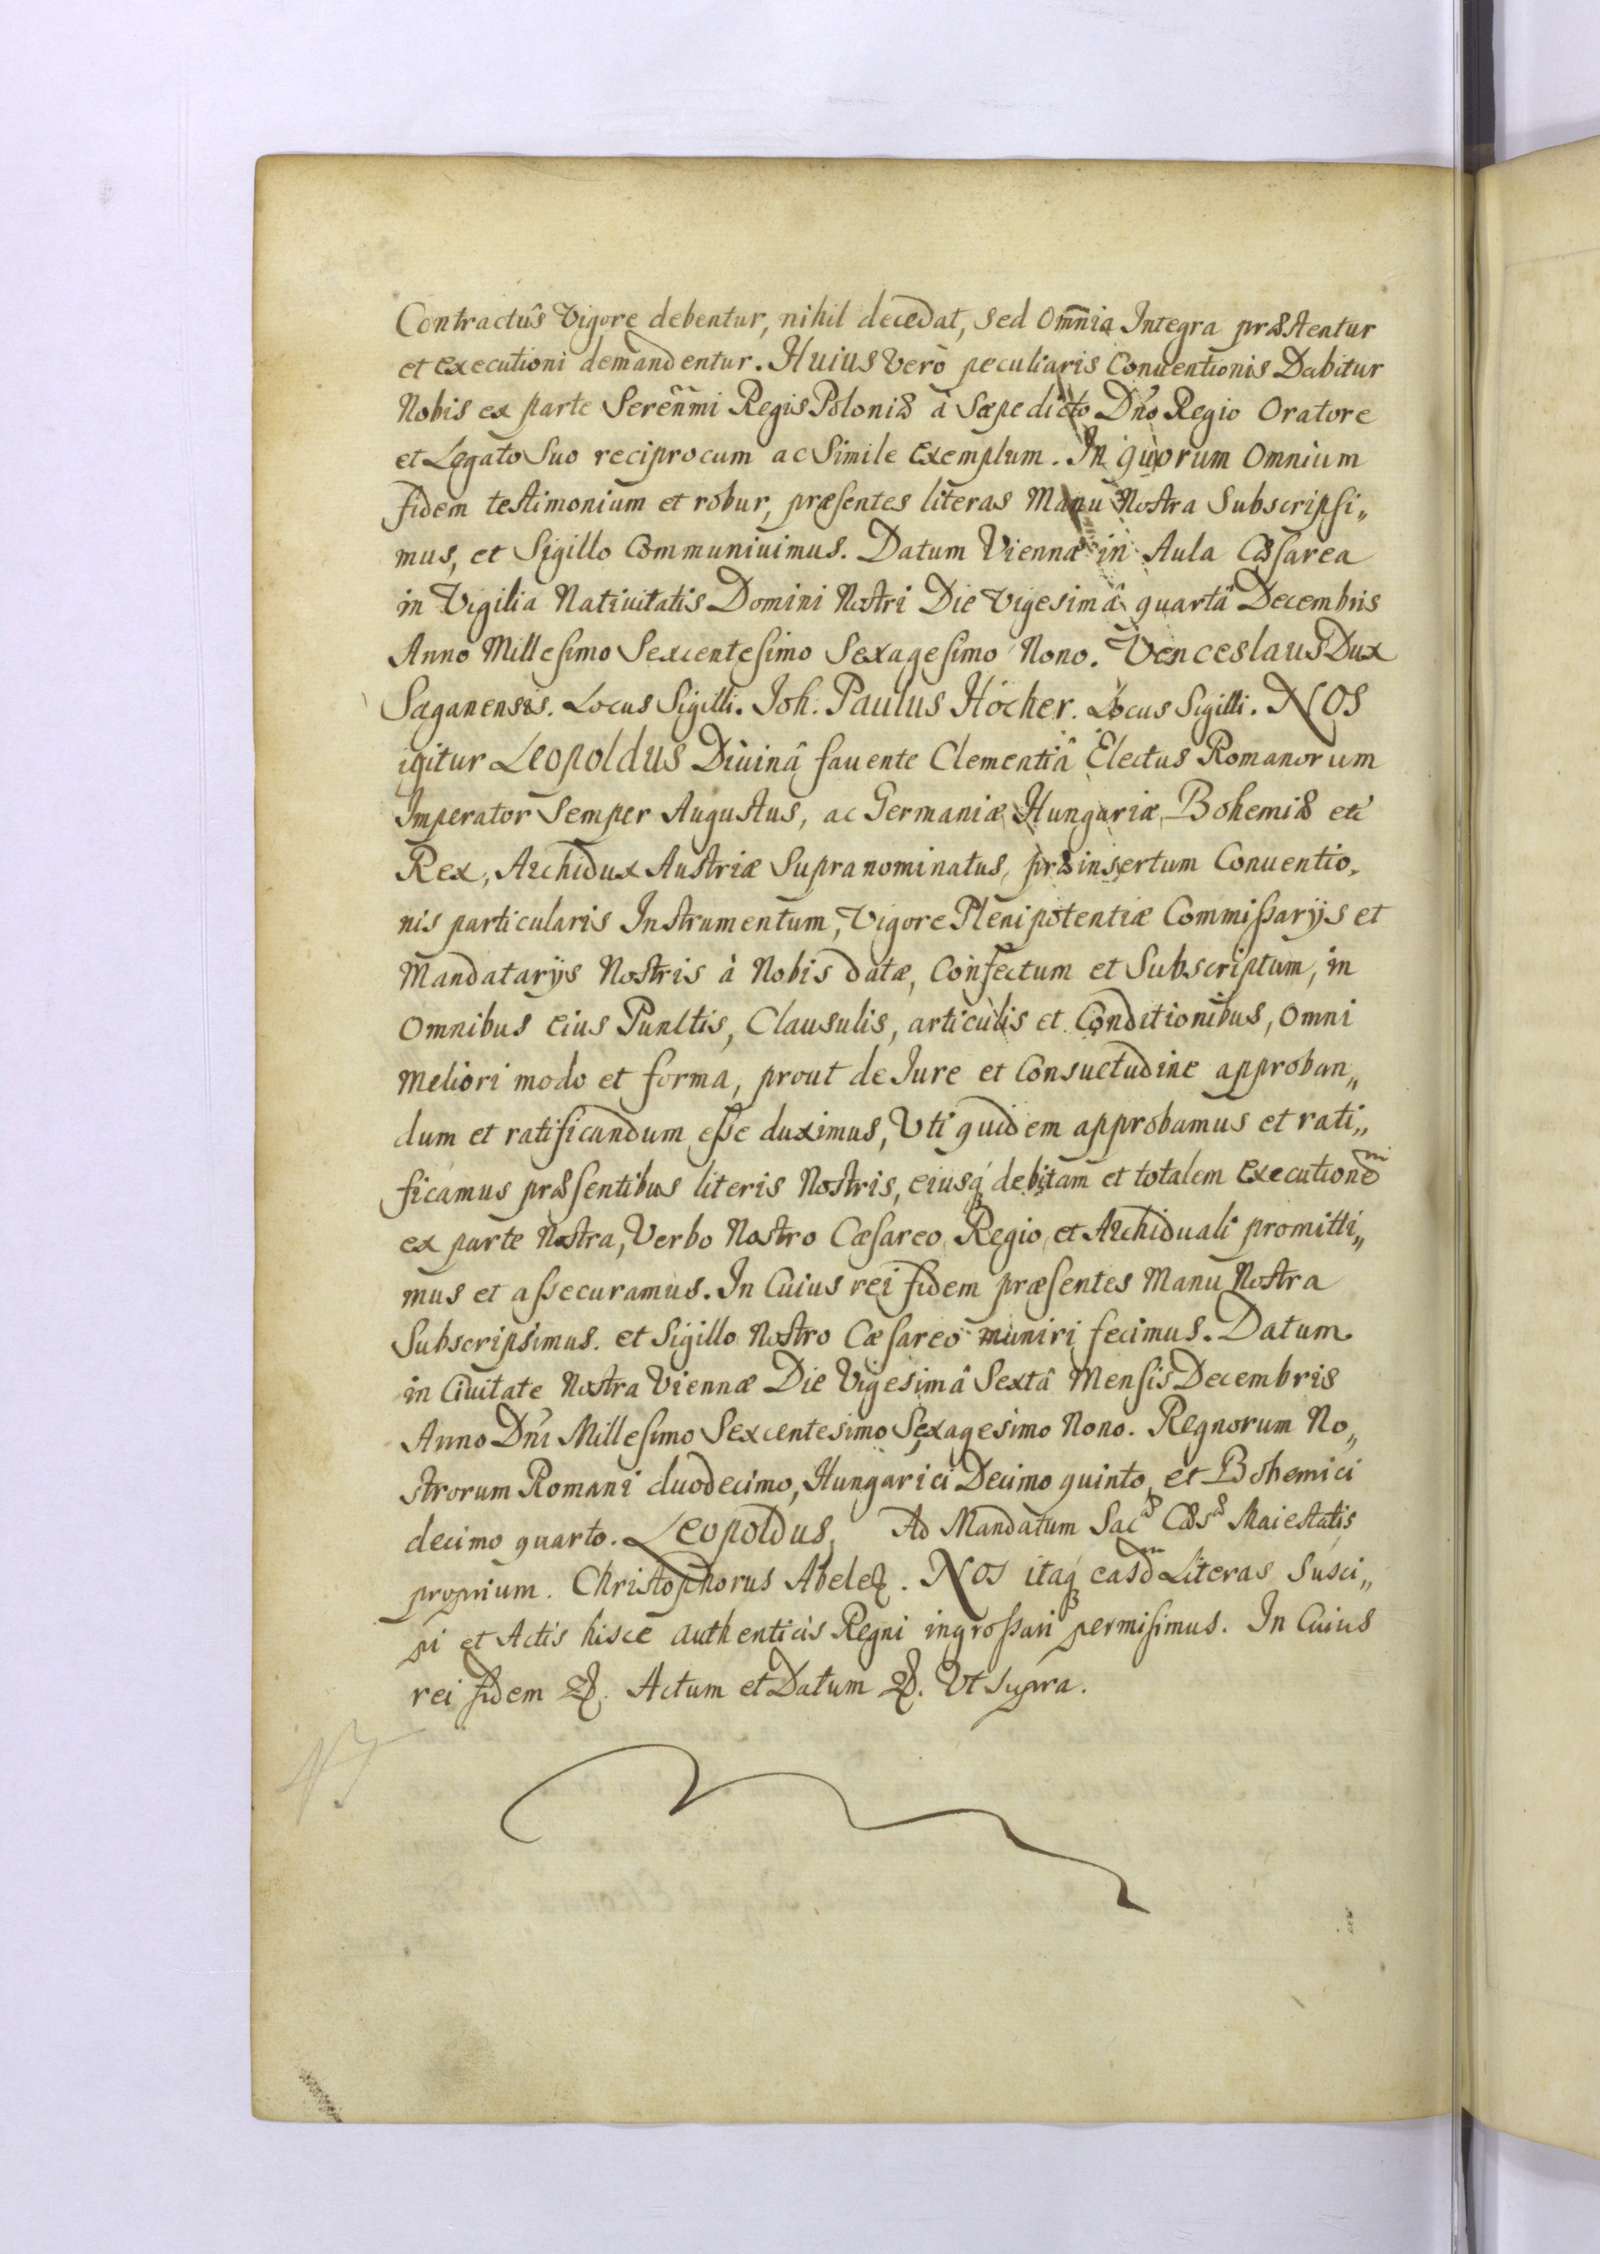 Contractûs Vigore debentur, nihil decedat, sed Omnia Integra præstentur
et Executioni demandentur. Huius verò peculiaris Conuentionis Dabitur
Nobis ex parte Serenmi Regis Poloniæ à Sæpedicto Dno Regio Oratore
et Legato Suo reciprocum ac Simile Exemplum. In quorum Omnium
fidem testimonium et robur, præsentes literas Manu Nostra Subscripsi„
mus, et Sigillo Communiuimus. Datum Viennæ in Aula Cæsarea
in Vigilia Natiuitatis Domini Nostri Die Vigesimâ quartâ Decembris
Anno Millesimo Sexcentesimo Sexagesimo Nono. Venceslaus Dux
Saganensis. Locus Sigilli. Joh. Paulus Hocher. Locus Sigilli. NOS
igitur Leopoldus Diuinâ fauente Clementiâ Electus Romanorum
Imperator Semper Augustus, ac Germaniæ, Hungariæ, Bohemiæ etc
Rex, Archidux Austriæ Supranominatus, præinsertum Conuentio„
nis particularis Instrumentum, Vigore Plenipotentiæ Commissarijs et
Mandatarijs Nostris à Nobis datæ, Confectum et Subscriptum, in
Omnibus Eius Punctis, Clausulis, articulis et Conditionibus, Omni
Meliori modo et forma, prout de Jure et Consuetudine approban„
dum et ratificandum esse duximus, Uti quidem approbamus et rati„
ficamus præsentibus literis Nostris, eiusq́ debitam et totalem Executionem
ex parte Nostra, Verbo Nostro Cæsareo, Regio, et Archiduali promitti„
mus et assecuramus. In Cuius rei fidem præsentes Manu Nostra
Subscripsimus. et Sigillo Nostro Cæsareo muniri fecimus. Datum
in Ciuitate Nostra Viennæ Die Vigesimâ Sextâ Mensis Decembris
Anno Dni Millesimo Sexcentesimo Sexagesimo Nono. Regnorum No„
strorum Romani duodecimo, Hungarici Decimo quinto, et Bohemici
decimo quarto. Leopoldus. Ad Mandatum Sacæ Cæsæ Maiestatis
proprium. Christophorus Abele. NOS itaq́ easdem Literas Susci„
pi et Actis hisce authenticis Regni ingrossari permisimus. In Cuius
rei fidem &. Actum et Datum &. Ut supra.